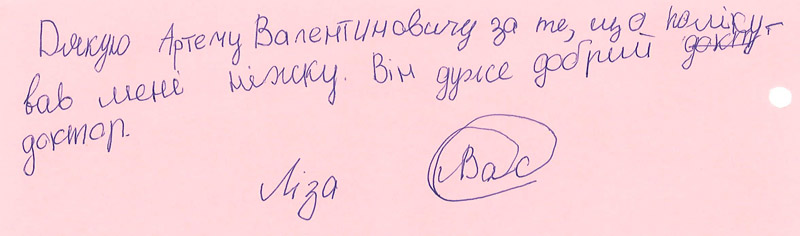 Дякую Артему Валентиновичу за те, що поліку-
вав мені ніжку. Він дуже добрий докт
доктор.
Ліза Вас